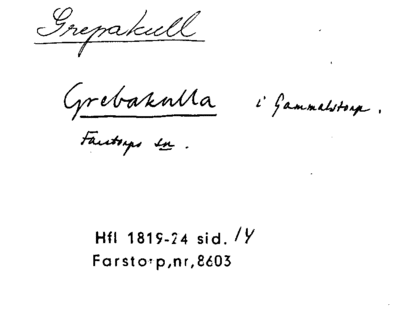 Grepakull
Grebakulla i Gammalstorp.
Farstorps sn.
Hfl 1819-24 sid. 14
Farstorp,nr,8603